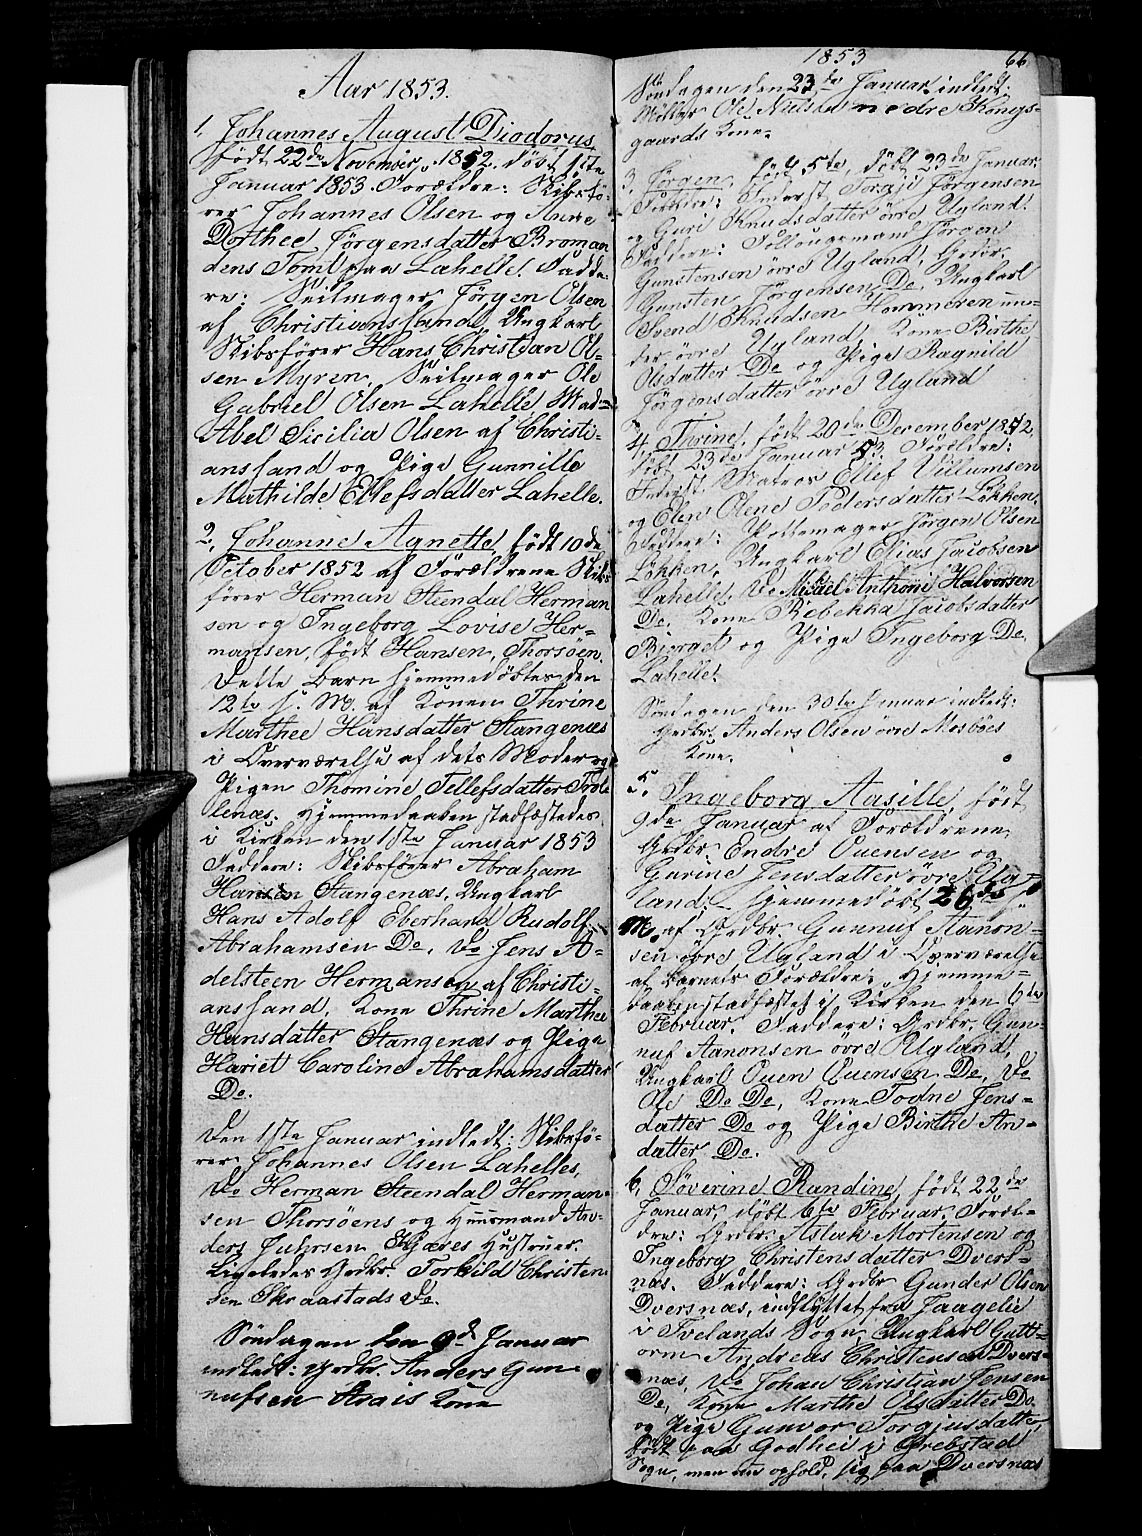 Aar 1853.
1, Johannes August Diodorus
født 22de November 1852. døbt 1ste
Januar 1853. Forældre: Skibsfø-
rer Johannes Olsen og Anne
Dorthee Jørgensdatter Broman
dens Tomt paa Lahelle. Fadde-
re: Seilmager Jørgen Olsen
af Christiansand, Ungkarl
Skibsfører Hans Christian Ol-
sen Myren, Seilmager Ole
Gabriel Olsen Lahelle Mad-
Abel Sicilia Olsen af Christi-
ansand og Pige Gunnille
Mathilde Ellefsdatter Lahelle.
2, Johanne Agnette født 10de
October 1852 af Forældrene Skibs
fører Herman Steendal Herman
sen og Ingeborg Lovise Her-
mansen, født Hansen, Thorsøen.
Dette Barn hjemmedøbtes den
12te s. M. af Konen Thrine
Marthee Hansdatter Stangenæs
i Overværelse af dets Moder og
Pigen Thomine Tellefsdatter Trol
lenæs. Hjemmedaaben stadfæstedes
i Kirken den 1ste Januar 1853
Faddere: Skibsfører Abraham
Hansen Stangenæs, Ungkarl
Hans Adolf Eberhard Rudolf
Abrahamsen Do, Do Jens A-
delsteen Hermansen af Christi-
ansand, Kone Thrine Marthee
Hansdatter Stangenæs og Pige
Hariet Caroline Abrahamsdatter
Do.
Den 1ste Januar indledt: Skibsfø-
rer Johannes Olsen Lahelles
Do Herman Steendal Herman-
sen Thorsøens og Huusmand An-
ders Juhrsen Kjæres Hustruer.
Ligeledes Grdbr. Torkild Christen
sen Skraastads Do.
Søndagen den 9de Januar
indledt: Grdbr. Anders Gun-
nufsen Arais Kone
1853 66
Søndagen den 23de Januar indledt:
Møller Ole Nielsen nedre Kongs-
gaards Kone.
3, Jørgen, født 5te, døbt 23de Januar
Forældre: Inderst Torgje Jørgensen
og Guri Knudsdatter øvre Ugland.
Faddere: Follougemand Jørgen
Gunstensen øvre Ugland, Grdbr.
Gunsten Jørgensen Do, Ungkarl
Svend Knudsen Hommeren un-
der øvre Ugland, Kone Birthe
Olsdatter Do og Pige Ragnild
Jørgensdatter øvre Ugland
4, Thrine, født 20de December 1852,
døbt 23de Januar 53. Forældre:
Inderst, Matros Ellef Villumsen
og Elen Olene Pedersdatter Løkken.
Faddere: Pottemager Jørgen Olsen
Løkken, Ungkarl Elias Jacobsen
Lahelle, Do Micael Anthoni Halvorsen
Do, Kone Rebekka Jacobsdatter
Bjerget og Pige Ingeborg Do
Lahelle.
Søndagen den 30te Januar indledt:
Grdbr. Anders Olsen øvre Mosbøes
Kone.
5, Ingeborg Aasille, født
9de Januar af Forældrene
Grdbr Endre Ouensen og
Gurine Jensdatter øvre Ug-
land, hjemmedøbt 26de s.
M. af Grdbr. Gunnuf Aanon-
sen øvre Ugland i Overværelse
af Barnets Forældre. Hjemme-
daaben stadfæstet i Kirken den 6te
Februar. Faddere: Grdbr. Gun-
nuf Aanonsen øvre Ugland,
Ungkarl Ouen Ouensen Do, Do
Ole Do Do, Kone Todne Jens-
datter Do og Pige Birthe An-
datter Do.
6, Søverine Randine, født 22de
Januar, døbt 6te Februar. Foræl-
dre: Grdbr. Aslak Mortensen og
Ingeborg Christensdatter Dvers-
næs. Faddere: Grdbr Gunder Olsen
Dversnæs, indflyttet fra Jaagelie
i Ivelands Sogn, Ungkarl Gutt-
orm Andreas Christensen Dvers-
næs, Do Johan Christian Jensen
Do, Kone Marthe Olsdatter Do
og Pige Gunvor Torgjusdatter,
født paa Godhei i Grebstad
Sogn, men nu ophold. sig paa Dversnæs